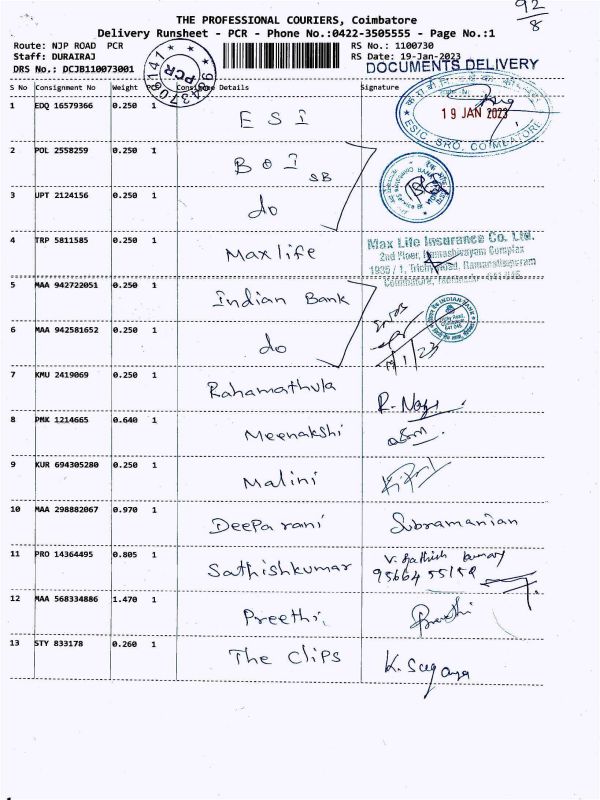 92/8
THE PROFESSIONAL COURIERS, Coimbatore
Delivery Runsheet - PCR - Phone No.:0422-3505555 - Page No.:1
Route: NJP ROAD PCR RS No.: 1100730
Staff: DURAIRAJ RS Date: 19-Jan-2023
DRS No.: DCJB110073001 DOCUMENTS DELIVERY
PCR
S No Consignment No Weight Details Signature
1 EDQ 16579366 0.250 1 ESI
19 JAN 2023
ESIC, SRO, COIMBATORE
2 POL 2558259 0.250 1 BOI SB
3 JPT 2124156 0.250 1 do
4 TRP 5811585 0.250 1 Maxlife
Max Life Insurance Co. Ltd.
2nd Floor, Complex
1935 / 1, Trichy Road, Ramanathapuram
Coimbatore,
5 MAA 942722051 0.250 1 Indian Bank
INDIAN BANK
6 MAA 942581652 0.250 1 do
19/1/23
7 KMU 2419069 0.250 1 Rahamathula
8 PMK 1214665 0.640 1 Meenakshi
9 KUR 694305280 0.250 1 Malini
10 MAA 298882067 0.970 1 Deepa rani Subramanian
11 PRO 14364495 0.805 1 Sathishkumar V. Sathish kumar
12 MAA 568334886 1.470 1 Preethi, Preethi
13 STY 833178 0.260 1 The Clips K. Suganya